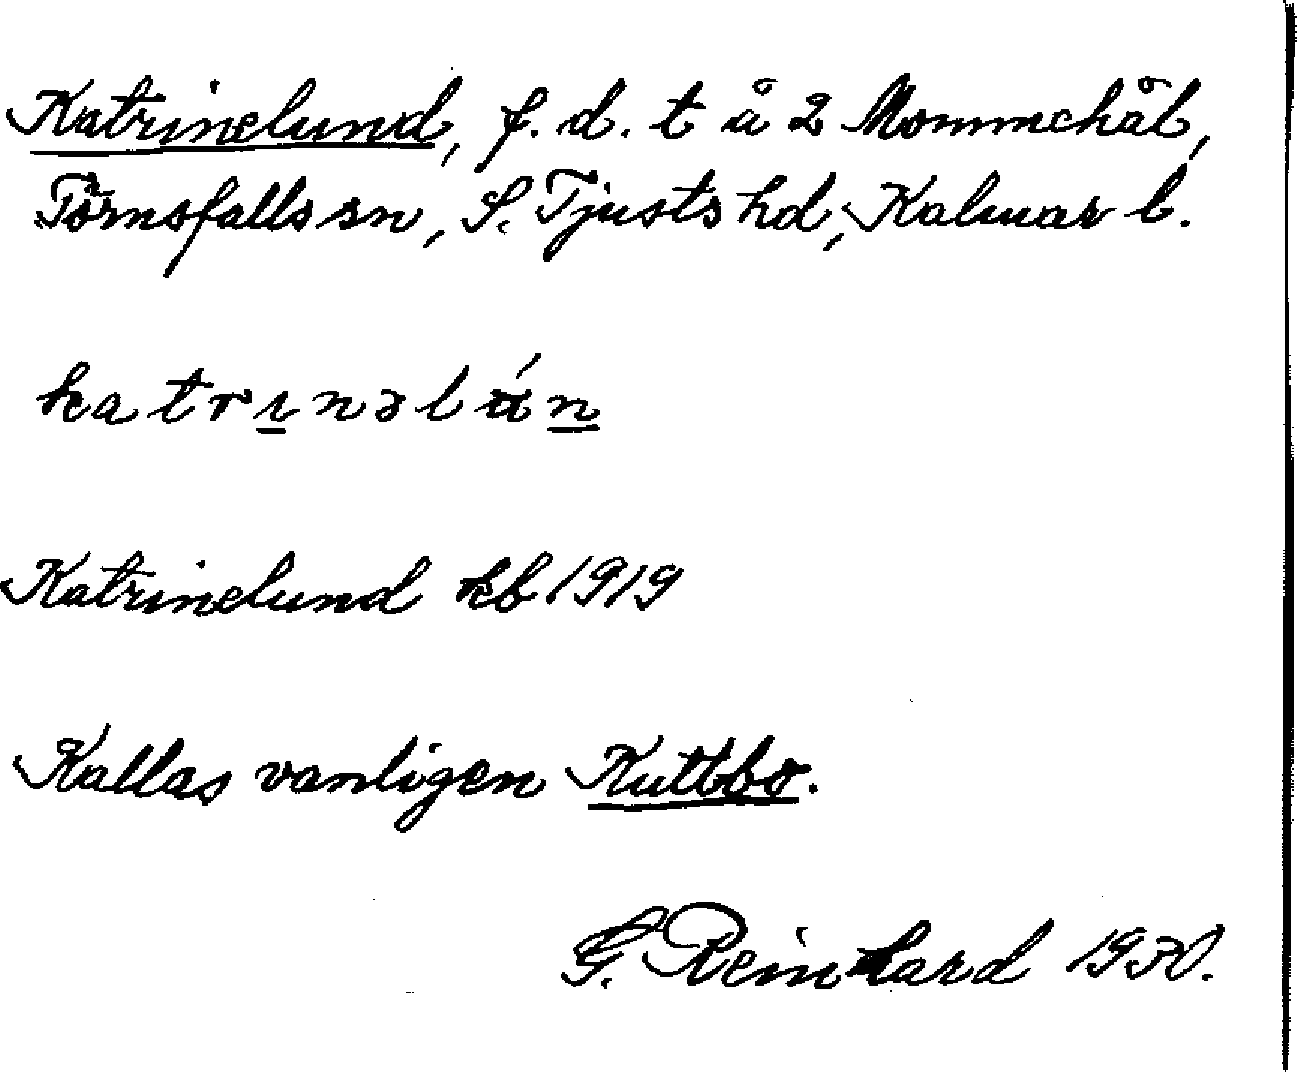 Katrinelund, f. d. t å 2 Mommehål,
Törnsfalls sn, S. Tjusts hd, Kalmar l.
katrinəlún
Katrinelund kb 1919
Kallas vanligen Kuttbo.
G. Reinhard 1930.